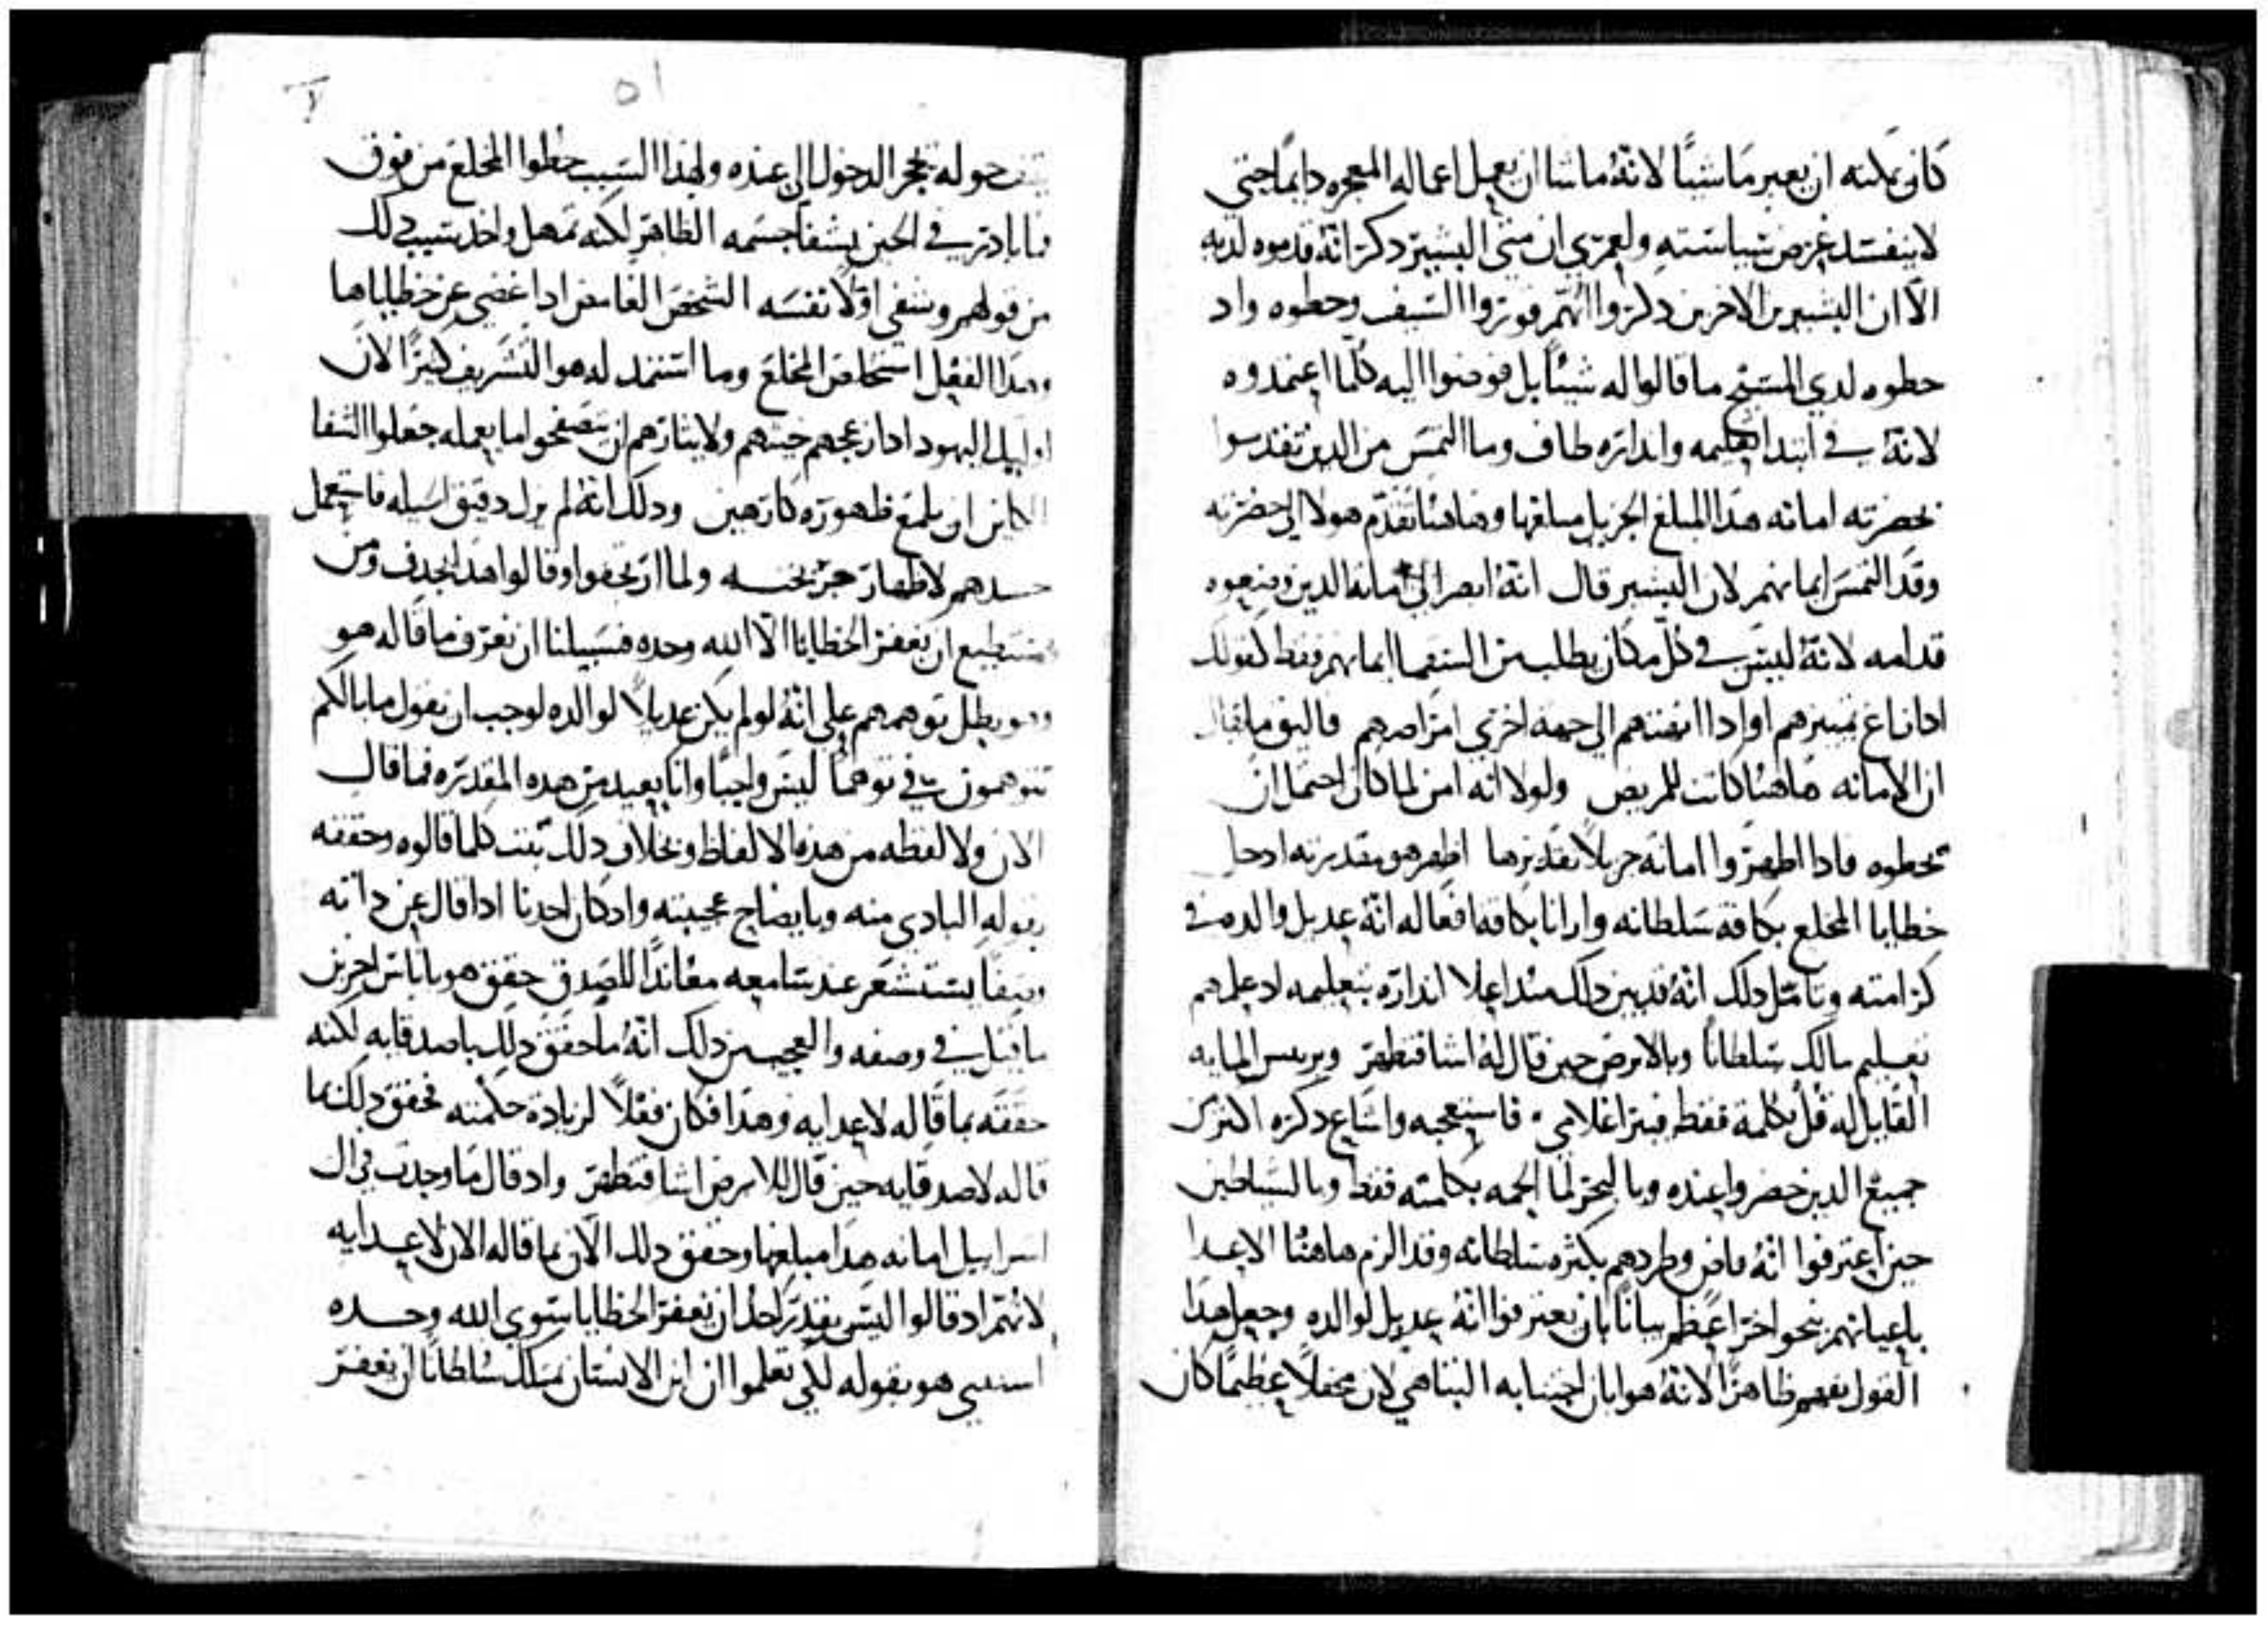 كان يمكنه ان يعبر ماشيًا لانهُ ما شا ان يعمل اعماله المعجزه دايمًا حتي
لا ينفسد غرض سياسته ولعمري ان متي البشير ذكر انهُ قدموه لديه
الا ان البشيرين الاخرين ذكروا انهم فوتروا السقف وحطوه واد
حطوه لدي المسيح ما قالوا له شيئًا بل فوضوا اليه كلما اعتمدوه
لانهُ في ابتدا تعليمه وانداره طاف وما التمس من الدين تقدموا
لحضرته امانه هدا المبلغ الجزيل مبلغها وهاهنا تقدم هولا الي حضرته
وقد التمس ايمانهم لان البشير قال انهُ ابصر الي امانة الدين وضعوه
قدامه لانهُ ليس في كل مكان يطلب من السقما ايمانهم فقط كقولك
ادا زاغ تمييزهم او ادا انقتهم الي جهه اخري امراضهم فاليق ما يقال
ان الامانه هاهنا كانت للمريض ولولا انه امن لما كان احتمل ان
تحطوه فادا اظهروا امانه جزيلاً تقديرها اظهر هو مقدرته اد حل
خطايا المخلع بكافة سلطانه وارانا بكافة افعاله انهُ عديل والده في
كرامته وتامل دلك انهُ قد بين دلك منداعلا انداره بتعليمه اد علمهم
تعليم مالك سلطانًا وبالابرص حين قال لهُ اشا فتطهر وبريس المايه
القايل له قُل بكلمة فقط فيبرا غلامي فاستعجبه واشاع دكره اكثر من
جميع الدين حضروا عنده وبالبحر لما الجمه بكلمته فقط وبالشياطين
حين اعترفوا انهُ قاضٍ وطردهم بكثرة سلطانه وقد الزم هاهنا الاعدا
باعيانهم نحو اخر اعظم بيانًا بان يعترفوا انهُ عديل لوالده وجعل هدا
القول بفمهم ظاهرًا لانهُ هو ابان اجتنابه التباهي لان محفلاً عظيمًا كان
٥١
حوله يحجر الدخول الي عنده ولهدا السبب حطوا المخلع من فوق
فما بادر في الحين بشفا جسمه الظاهر لكنه تمهل واخد سبب دلك
من قولهم وشفي اوّلاً نفسه الشخص الغامض ادا غضي عن خطاياها
وهدا الفعل استخلص المخلع وما استمد له هو التشريف كثيرًا لان
اوليك اليهود ادا ازعجهم خبثهم ولايثارهم ان يتصفحوا ما يعمله جعلوا الشفا
الكاين ان يلمع ظهوره كارهين ودلك انهُ لم يزل دقيق السيله فاستعمل
حسدهم لاظهار جرايحه ولما ارتجفوا وقالوا هدا يجدف ومن
يستطيع ان يغفر الخطايا الا الله وحده فسبيلنا ان نعرف ما قاله هو
وهو يبطل توهمهم علي انهُ لو لم يكن عديلاً لوالده لوجب ان يقول ما بالكم
تتوهمون في توهمًا ليس واجبًا وانا بعيد من هده المقدره فما قال
الان ولا لفظه من هده الالفاظ وبخلاف دلك ثبت كلما قالوه وحققه
بقوله البادي منه وبايضاح عجيبته واد كان احدنا ادا قال عن داته
وصفًا يستشعر عند سامعه معاندًا للصدق حقق هو باناس اخرين
ما قيل في وصفه والعجب من دلك انهُ ما حقق دلك باصدقايه لكنه
حققه بما قاله لاعدايه وهدا فكان فعلاً لزيادة حكمته فحقق دلك بما
قاله لاصدقايه حين قال للابرص اشا فتطهر واد قال ما وجدت في ال
اسراييل امانه هدا مبلغها وحقق دلك الان بما قاله الان لاعدايه
لانهم اد قالوا ليس يقدر احد ان يغفر الخطايا سوي الله وحده
استثني هو بقوله لكي تعلموا ان ابن الانسان يملك سلطانًا ان يغفر